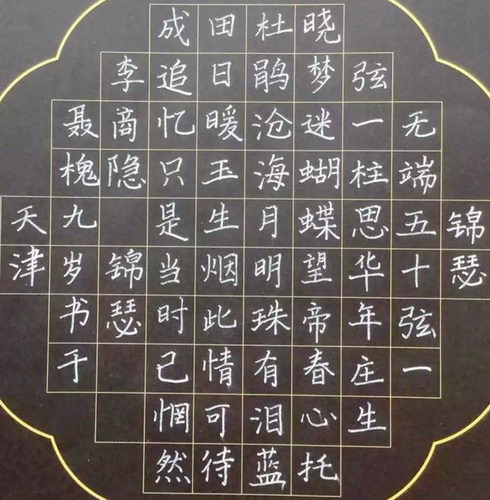 锦瑟
无端五十弦一
弦一柱思华年庄生
晓梦迷蝴蝶望帝春心托
杜鹃沧海月明珠有泪蓝
田日暖玉生烟此情可待
成追忆只是当时已惘然
李商隐 锦瑟
聂槐九岁书于
天津